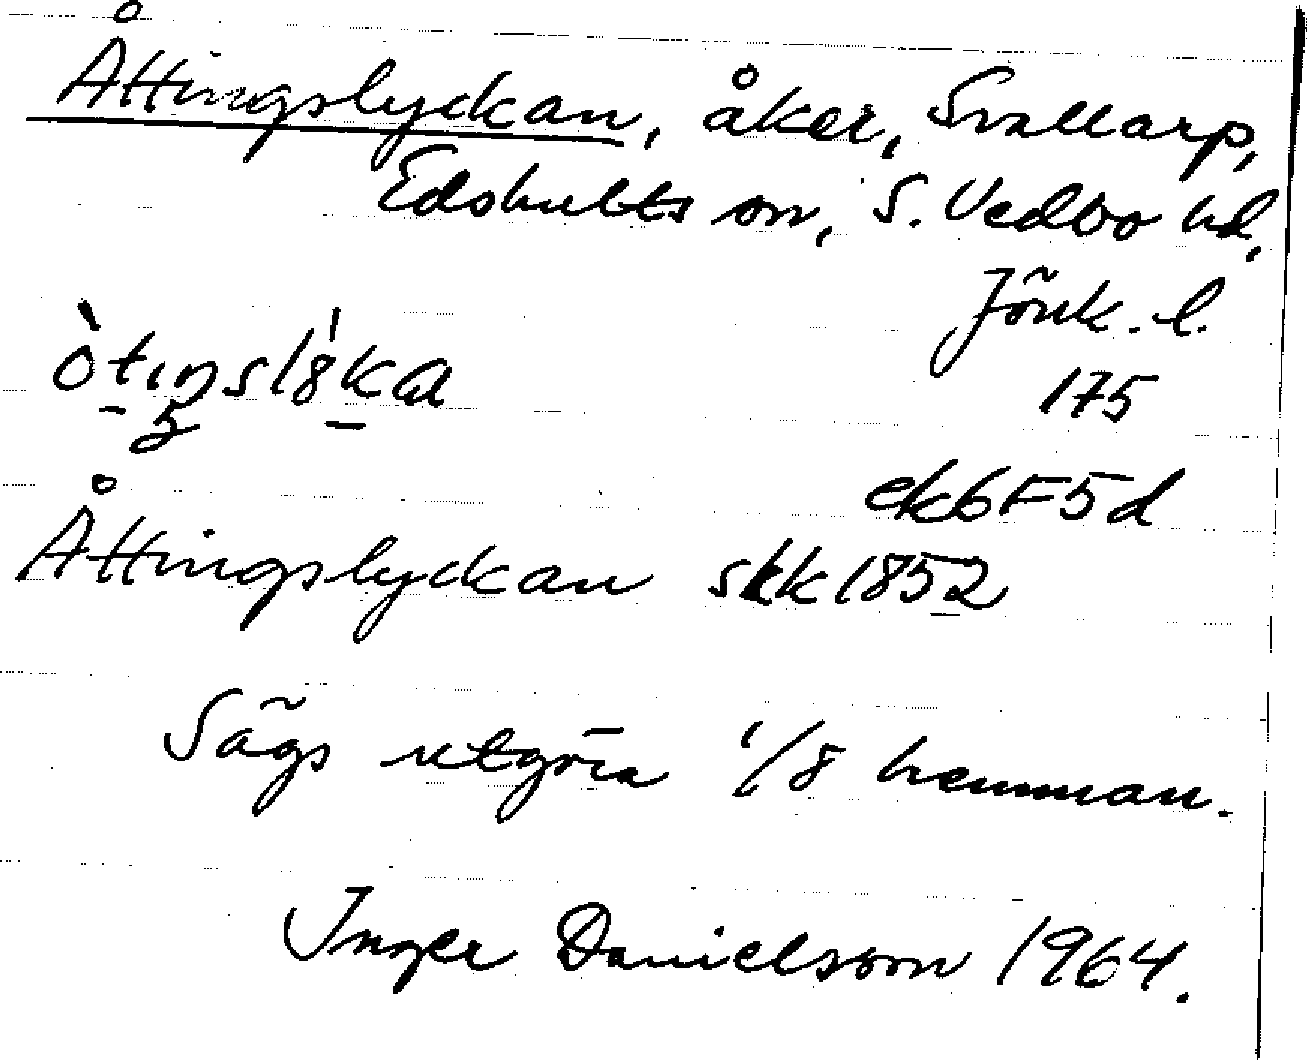 Åttingslyckan, åker, Svallarp,
Edshults sn, S. Vedbo hd,
Jönk. l.
175
ek6F5d
Åttingslyckan skk 1852
Sägs utgöra 1/8 hemman.
Inger Danielsson 1964.